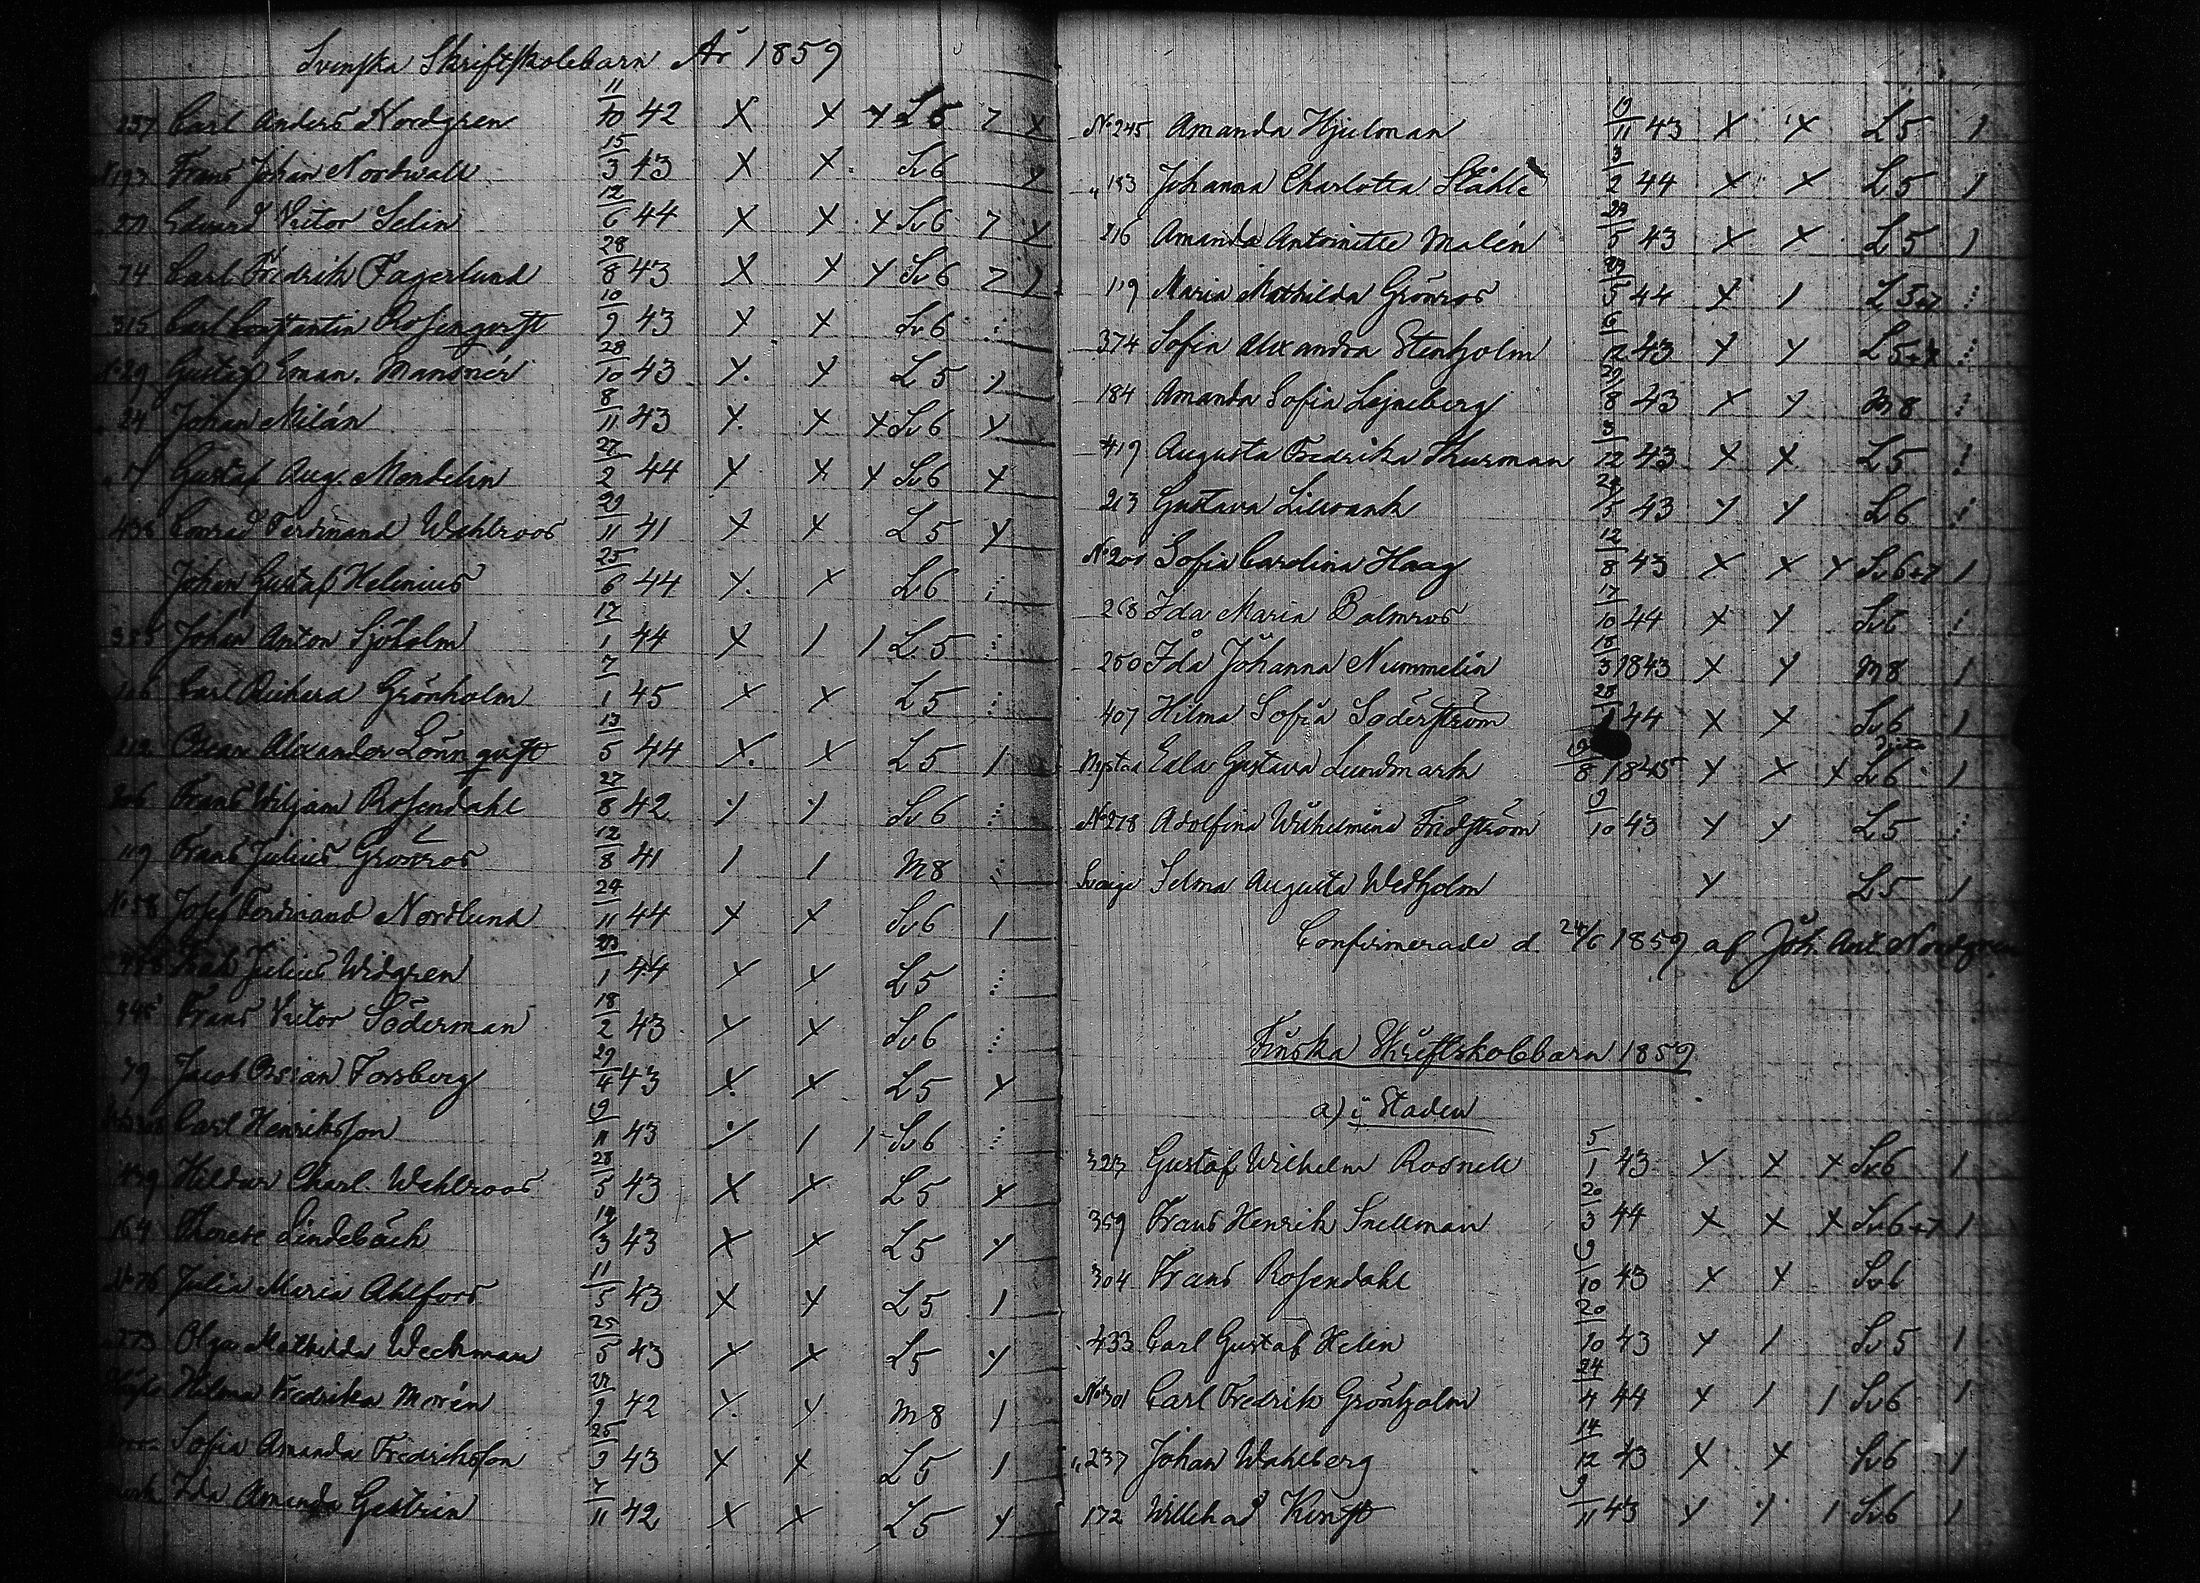 Svenska Skriftskolebarn År 1859
237 Carl Anders Nordgren 11/10 42 X X X L5 7 X
193 Frans Johan Nordwall 15/3 43 X X Sv6 X
Edvard Victor Selin 12/6 44 X X X Sv6 7 X
74 Carl Fredrik Fagerlund 28/8 43 X X X Sv6 7
315 Carl Constantin Rosenqvist 10/9 43 X X Sv6
No 29 Gustaf Eman. Mandnér 28/10 43 X X L5 1
24 Johan Milán 8/11 43 X X X Sv6 X
Gustaf Aug. Mendelin 27/2 44 X X X Sv6 X
Conrad Ferdinand Wahlroos 11 41 X X L5 X
Johan Gustaf Helenius 25/6 44 X X L6
Johan Anton Sjöholm 12/1 44 X 1 1 L5
Carl Richard Grönholm 7/1 45 X X L5
Oscar Alexander Lönnqvist 13/5 44 X X L5 1
Frans Wiljam Rosendahl 27/8 42 X X Sv6
119 Frans Julius Grönroos 12/8 41 1 1 M8
No 58 Josef Ferdinand Nordlund 24/11 44 X X Sv6 1
Julius Widgren 23/1 44 X X L5
Frans Victor Söderman 18/2 43 X X Sv6
79 Jacob Ossian Forsberg 29/4 43 X X L5 X
Carl Henriksson 19/11 43 1 1 Sv6
439 Hildur Charl. Wahlroos 28/5 43 X X L5 X
164 Lindebäck 3 43 X X L5 X
No 76 Julia Maria Ahlfors 11/5 43 X X L5 1
273 Olga Mathilda Weckman 25/5 43 X X L5 X
Hilma Fredrika Morén 9 42 X X M8 1
Sofia Amanda Fredriksson 25/9 43 X X L5 1
Ida Amanda Gestrin 7/11 42 X X L5 X
No 245 Amanda Hjulman 19/11 43 X X L5 1
" 153 Johanna Charlotta Ståhle 3/2 44 X X L5 1
216 Amanda Antoinette Malén 29/5 43 X X L5 1
119 Maria Mathilda Grönroos 23/5 44 X 1 L5+7
374 Sofia Alexandra Stenholm 6/12 43 X X L5+7
184 Amanda Sofia Lejneberg 8 43 X X M8
419 Augusta Fredrika Thurman 3/12 43 X X L5
213 Gustava Lilwank 5 43 X X L6
No 201 Sofia Carolina Haag 12/8 43 X X X Sv6+7 1
268 Ida Maria Palmros 17/10 44 X X Sv6
250 Ida Johanna Nummelin 18/3 1843 X X M8 1
407 Hilma Sofia Söderström 28/1 44 X X Sv6 1
Nystad Edla Gustava Lundmark 19/8 1845 X X X Sv6 1
No 278 Adolfina Wilhelmina Fridström 9/10 43 X X L5
Sverige Selma Augusta Wedholm X L5 1
Confirmerade d. 24/6 1859 af Joh. Ant. Nordgren
Finska Skriftskolebarn 1859
a) i Staden
323 Gustaf Wilhelm Rosnell 5/1 43 X X X Sv6 1
369 Frans Henrik Snellman 20/3 44 X X X Sv6+7 1
304 Frans Rosendahl 9/10 43 X X Sv6
433 Carl Gustaf Helin 20/10 43 X 1 Sv5 1
No 301 Carl Fredrik Grönholm 24/4 44 X 1 1 Sv6 1
" 237 Johan Wahlberg 14/12 43 X X Sv6 1
172 Willehad Kinst 9/11 43 X X 1 Sv6 1